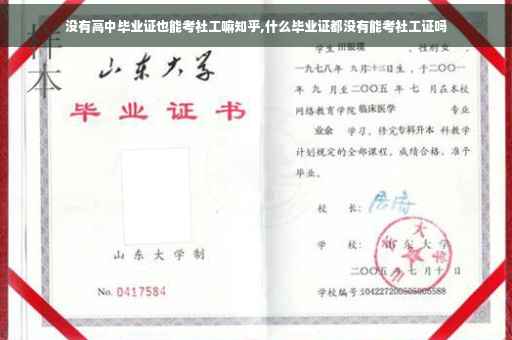 没有高中毕业证也能考社工嘛知乎,什么毕业证都没有能考社工证吗
样本
山东大学
毕业证书
山东大学制
No. 0417584
学生
性别女，
一九七八年 九月十三日生，于二〇〇一
年 九 月至二〇〇五 年 七 月在本校
网络教育学院 临床医学 专业
业余 学习，修完专科升本 科教学
计划规定的全部课程，成绩合格，准予
毕业。
校 长：
学 校： 山东大学
二〇〇五 年 七 月 十 日
学校编号: